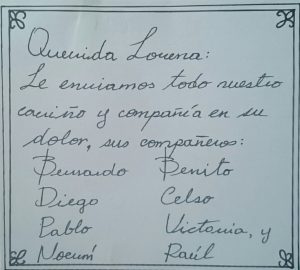 Querida Lorena:
Le enviamos todo nuestro
cariño y compañía en su
dolor, sus compañeros:
Bernardo Benito
Diego Celso
Pablo Victoria, y
Noemí Raúl